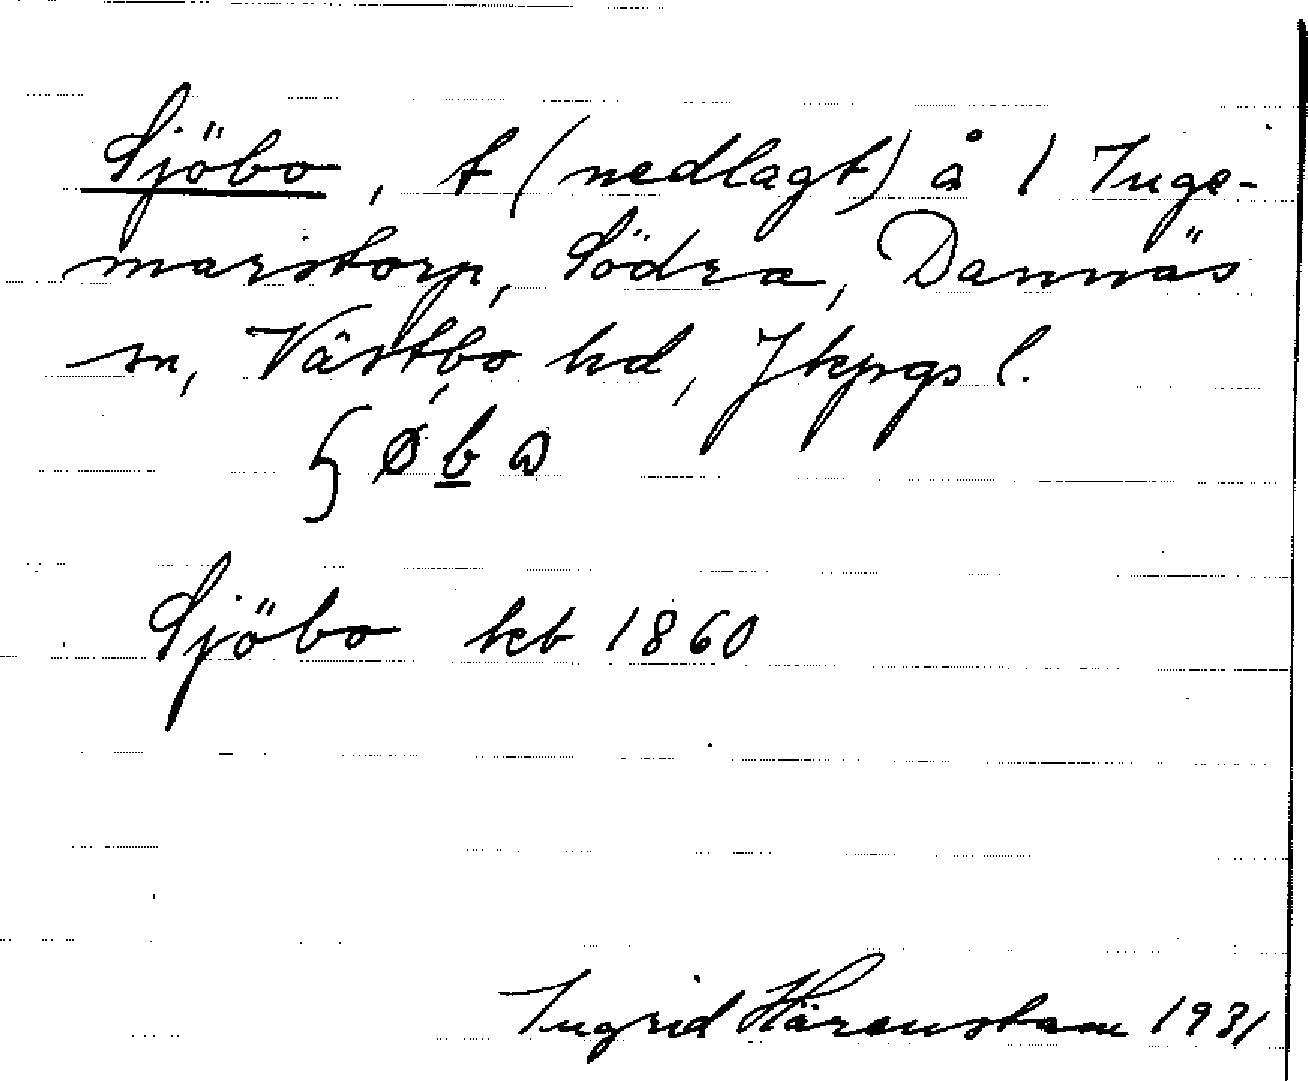 Sjöbo, t (nedlagt) å 1 Inge-
marstorp, Södra, Dannäs
sn, Västbo hd, Jkpgs l.
Sjöbo kb 1860
Ingrid Härenstam 1931